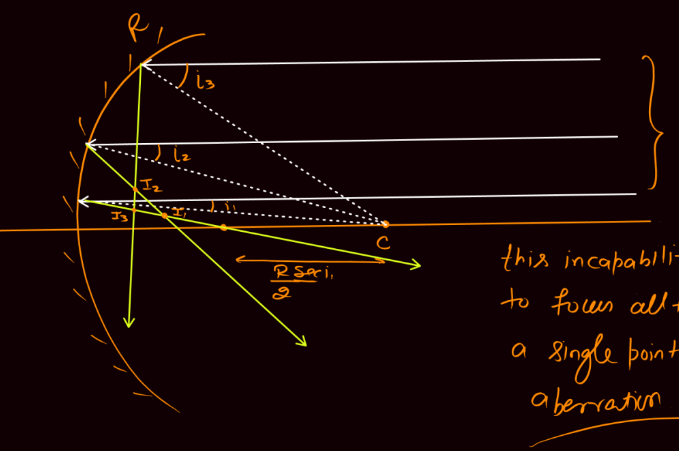 R
i₃
i₂
I₂
I₃ I₁ i₁
C
R Sec i₁
2
this incapabili
to focus all
a single point
aberration